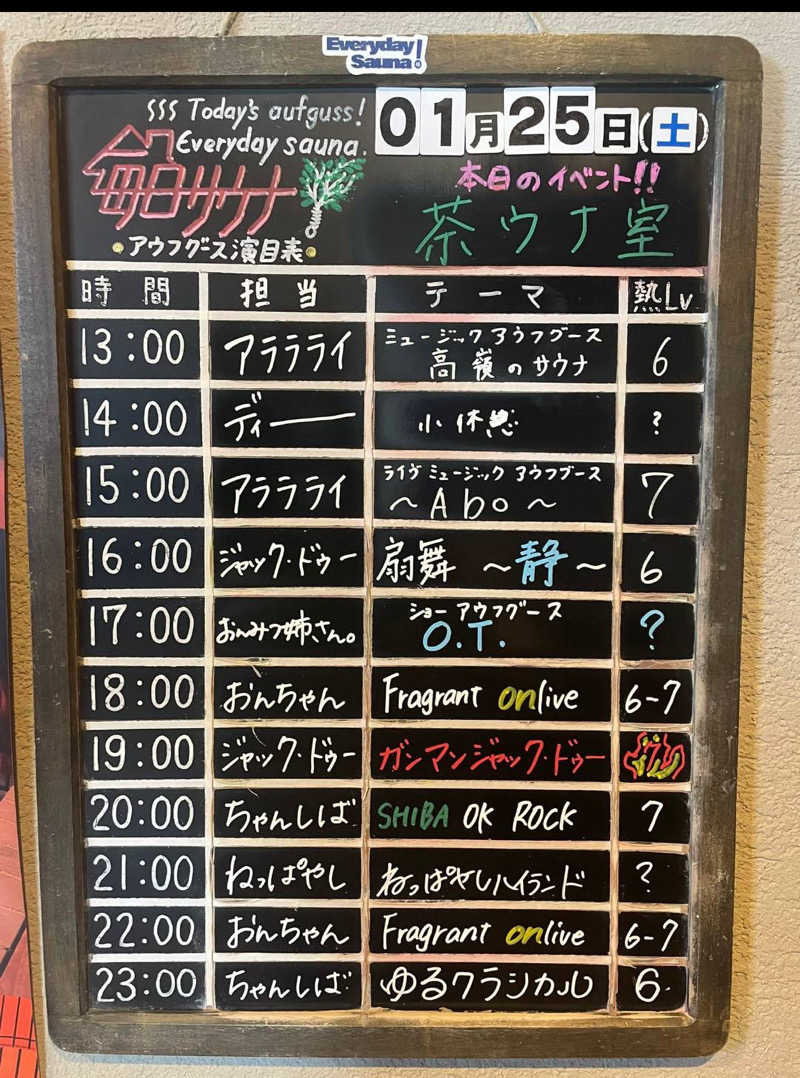 Everyday
Sauna!
Today's aufguss!
Everyday sauna.
01月25日(土)
毎日サウナ
本日のイベント!!
アウフグース演目表
茶ウナ室
時間 担当 テーマ 熱Lv
13:00 アラララライ ミュージックアウフグース 6
高嶺のサウナ
14:00 ディー 小休憩 ?
15:00 アララライ ライヴミュージックアウフグース 7
~Abo~
16:00 ジャック・ドゥー 扇舞 ~静~ 6
17:00 おんみつ姉さん。 ショーアウフグース ?
O.T.
18:00 おんちゃん Fragrant onlive 6-7
19:00 ジャック・ドゥー ガンマンジャック・ドゥー 7
20:00 ちゃんしば SHIBA OK ROCK 7
21:00 ねっぱやし ねっぱやしハイランド ?
22:00 おんちゃん Fragrant onlive 6-7
23:00 ちゃんしば ゆるクラシカル 6